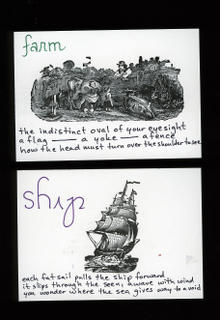 farm
the indistinct oval of your eyesight
a flag — a yoke — a fence
how the head must turn over the shoulder to see
ship
each fat sail pulls the ship forward
it slips through the seen; a wave with wind
you wonder where the sea gives way to a void